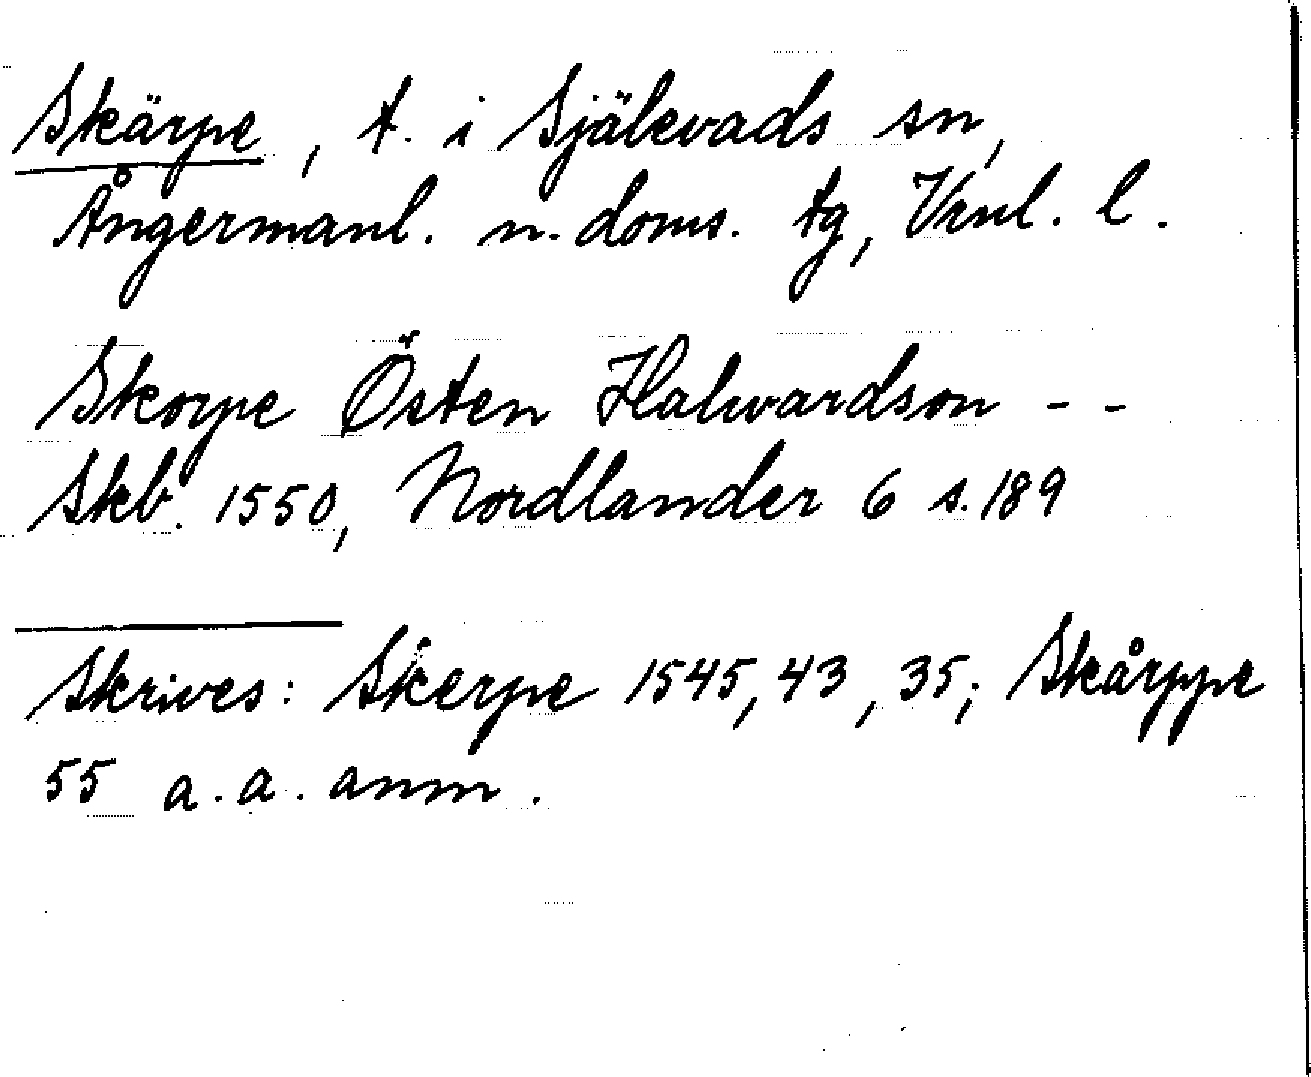 Skärpe, t. i Själevads sn,
Ångermanl. n. doms. tg, Vrnl. l.
Skorpe Östen Halwardson - -
Skb. 1550, Nordlander 6 s. 189
Skrives: Skerpe 1545, 43, 35; Skårppe
55 a. a. anm.